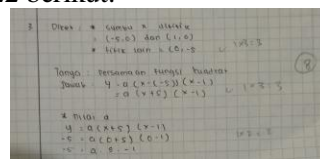 2 berikut.
3 Diket : * sumbu x di titik
= (-5,0) dan (1,0)
* titik lain = (0,-5
1x3 : 3
8
Tanya : Persamaan fungsi kuadrat
Jawab y = a (x-(-5)) (x-1)
= a (x+5) (x-1)
1x3 : 3
* nilai a
y = a (x+5) (x-1)
-5 = a (0+5) (0-1)
-5 = a . 5 . -1